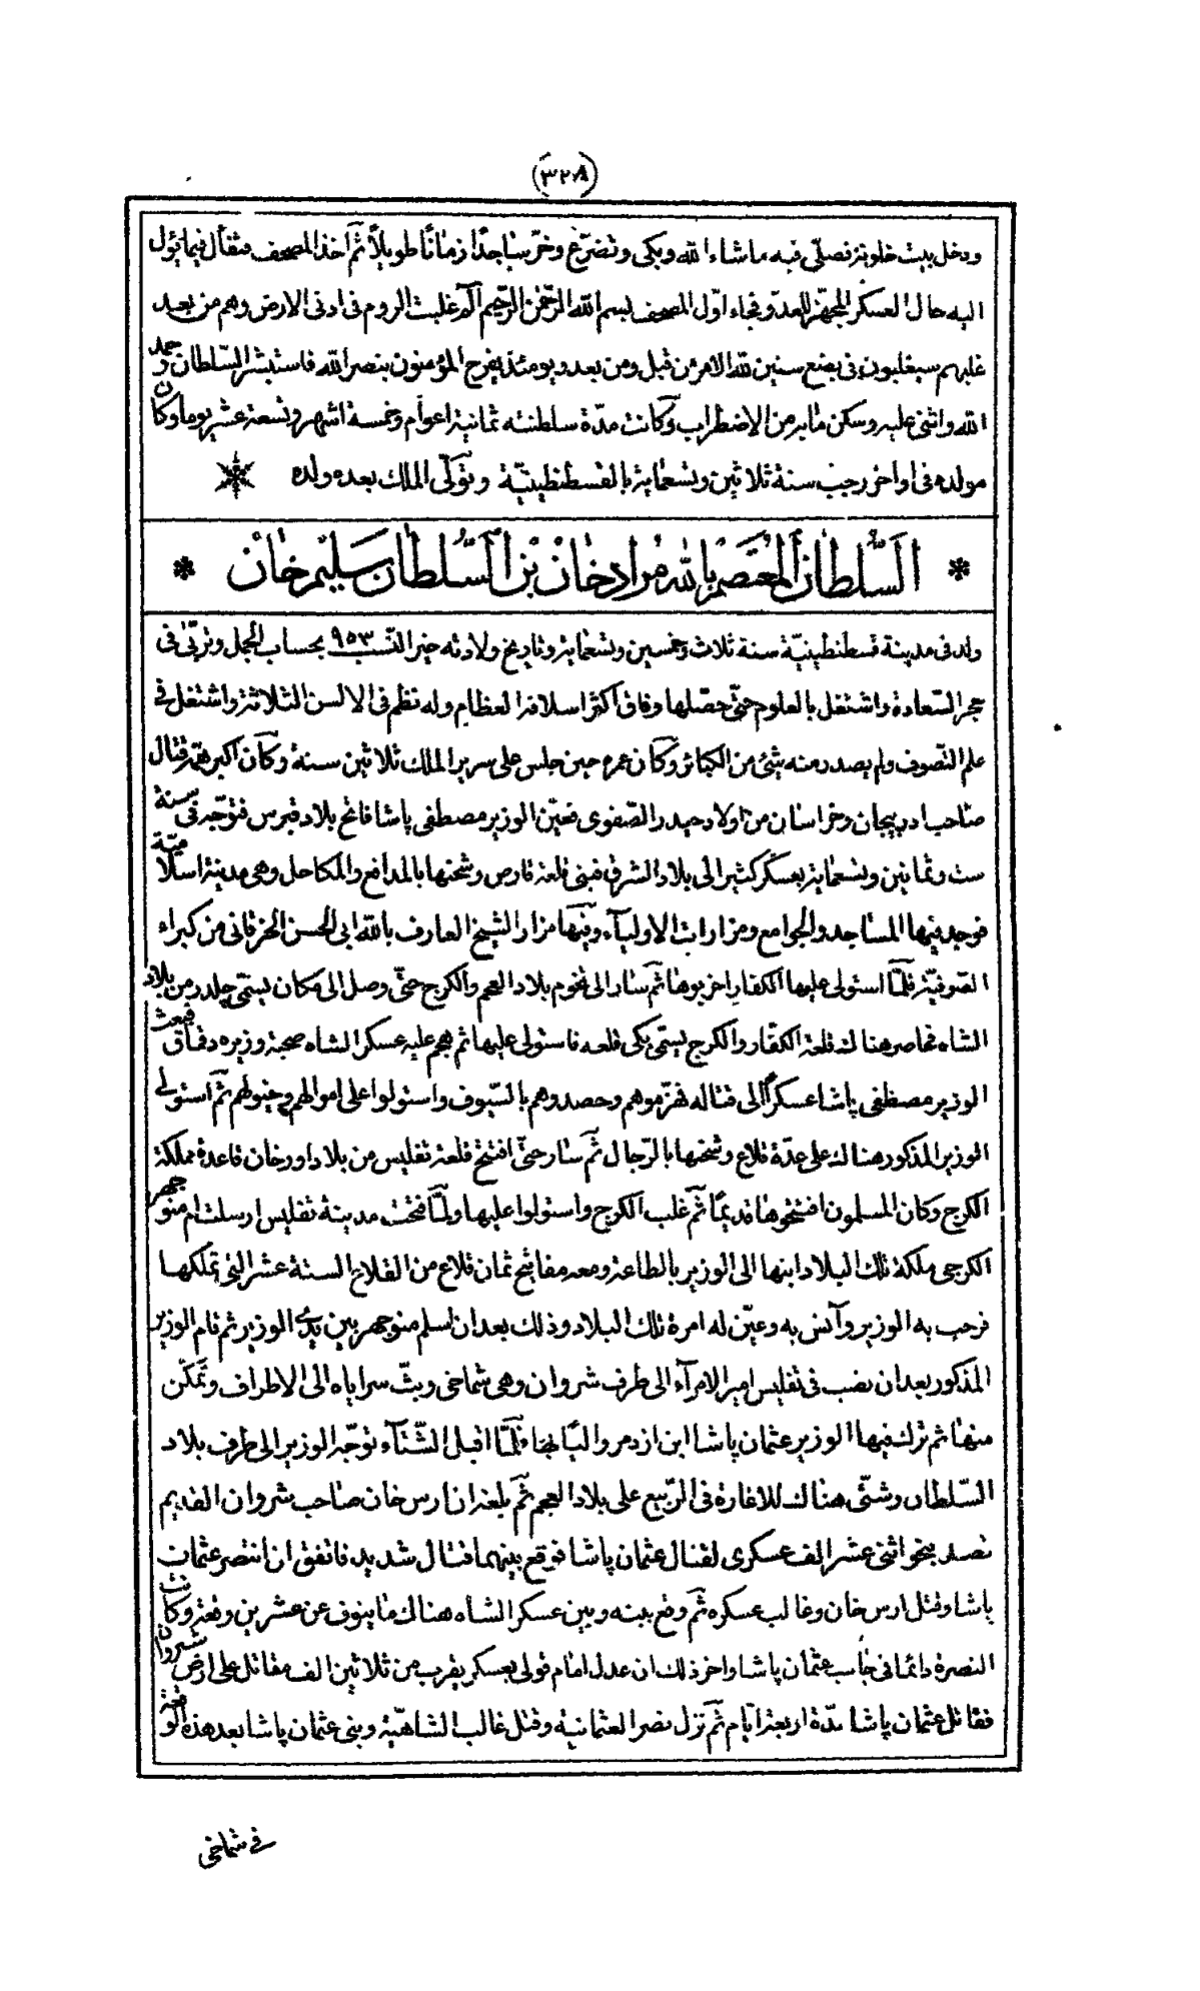 (٣٢٨)
ودخل بيت خلوته فصلّى فيه ماشاء الله وبكى وتضرّع وخرّ ساجدًا زمانًا طويلاً ثمّ اخذ المصحف فتفأل فيما يؤل
اليه حال العسكر المجهّز للعدوّ فجاء اوّل المصحف بسم الله الرّحمن الرّحيم الٓمّ غلبت الروم فى ادنى الارض وهم من بعد
غلبهم سيغلبون فى بضع سنين لله الامر من قبل ومن بعد ويومئذ يفرح المؤمنون بنصر الله فاستبشر السّلطان وحمد
الله واثنى عليه وسكن مابه من الاضطراب وكانت مدّة سلطنته ثمانية اعوام وخمسة اشهر وتسعة عشر يوما وكان
مولده فى اواخر رجب سنة ثلاثين وتسعمايه بالقسطنطينيّة وتولّى الملك بعده ولده
السّلطان المعتصم بالله مراد خان بن السّلطان سليم خان
ولد فى مدينة قسطنطينيّة سنة ثلاث وخمسين وتسعمايه وتاريخ ولادته خير النّسب ٩٥٣ بحساب الجمل وتربّى فى
حجر السّعادة واشتغل بالعلوم حتّى حصّلها وفاق اكثر اسلافه العظام وله نظم فى الالسن الثلاثة واشتغل فى
علم التصوف ولم يصدر منه شئ من الكبائر وكان عمره حين جلس على سرير الملك ثلاثين سنة وكان اكبر همّه قتال
صاحب ادربيجان وخراسان من اولاد حيدر الصّفوى فعيّن الوزير مصطفى پاشا فاتح بلاد قبرس فتوجّه فى سنة
ست وثمانين وتسعمايه بعسكر كثير الى بلاد الشرق فبنى قلعة قارص وشحنها بالمدافع والمكاحل وهى مدينة اسلامية
فوجد فيها المساجد والجوامع ومزارات الاولياء وفيها مزار الشيخ العارف بالله ابى الحسن الخرقانى من كبراء
الصّوفيّة فلمّا استولى عليها الكفار اخربوها ثمّ سار الى تخوم بلاد العجم والكرج حتّى وصل الى مكان يسمّى چلدر من بلاد
الشاه فحاصر هناك قلعة الكفّار والكرج يسمّى يكى قلعه فاستولى عليها ثم هجم عليه عسكر الشاه صحبة وزيره دقماق فبعث
الوزير مصطفى پاشا عسكراً الى قتاله فهزّموهم وحصدوهم بالسّيوف واستولوا على اموالهم وخيولهم ثمّ استولى
الوزير المذكور هناك على عدّة قلاع وشحنها بالرّجال ثمّ سار حتّى افتتح قلعة تفليس من بلاد اورخان قاعدة مملكة
الكرج وكان المسلمون افتتحوها قديمًا ثمّ غلب الكرج واستولوا عليها ولمّا فتحت مدينة تفليس ارسلت ام منوجهر
الكرجى ملكة تلك البلاد ابنها الى الوزير بالطاعة ومعه مفاتيح ثمان قلاع من القلاع الستة عشر التى تملكها
فرحب به الوزير وآنس به وعيّن له امرة تلك البلاد وذلك بعد ان اسلم منوجهر بين يدى الوزير ثم قام الوزير
المذكور بعد ان نصب فى تفليس امير الامرآء الى طرف شروان وهى شماخى وبثّ سراياه الى الاطراف وتمكّن
منها ثم ترك فيها الوزير عثمان پاشا ابن ازدمر واليًا بها فلمّا اقبل الشّتآء توجّه الوزير الى طرف بلاد
السّلطان وشتّى هناك للاغارة فى الرّبيع على بلاد العجم ثمّ بلغه ان ارس خان صاحب شروان القديم
قصد بنحو اثنى عشر الف عسكرى لقتال عثمان پاشا فوقع بينهما قتال شديد فاتفق ان انتصر عثمان
پاشا وقتل ارس خان وغالب عسكره ثمّ وقع بينه وبين عسكر الشاه هناك ما ينوف عن عشرين وقعة وكانت
النصرة دائما فى جانب عثمان پاشا واخر ذلك ان عدل امام قولى بعسكر يقرب من ثلاثين الف مقاتل على ارض شروان
فقاتل عثمان پاشا مدّة اربعة ايّام ثمّ نزل نصر العثمانية وقتل غالب الشاهيّة وبنى عثمان پاشا بعد هذه الوقعة
فى شماخى